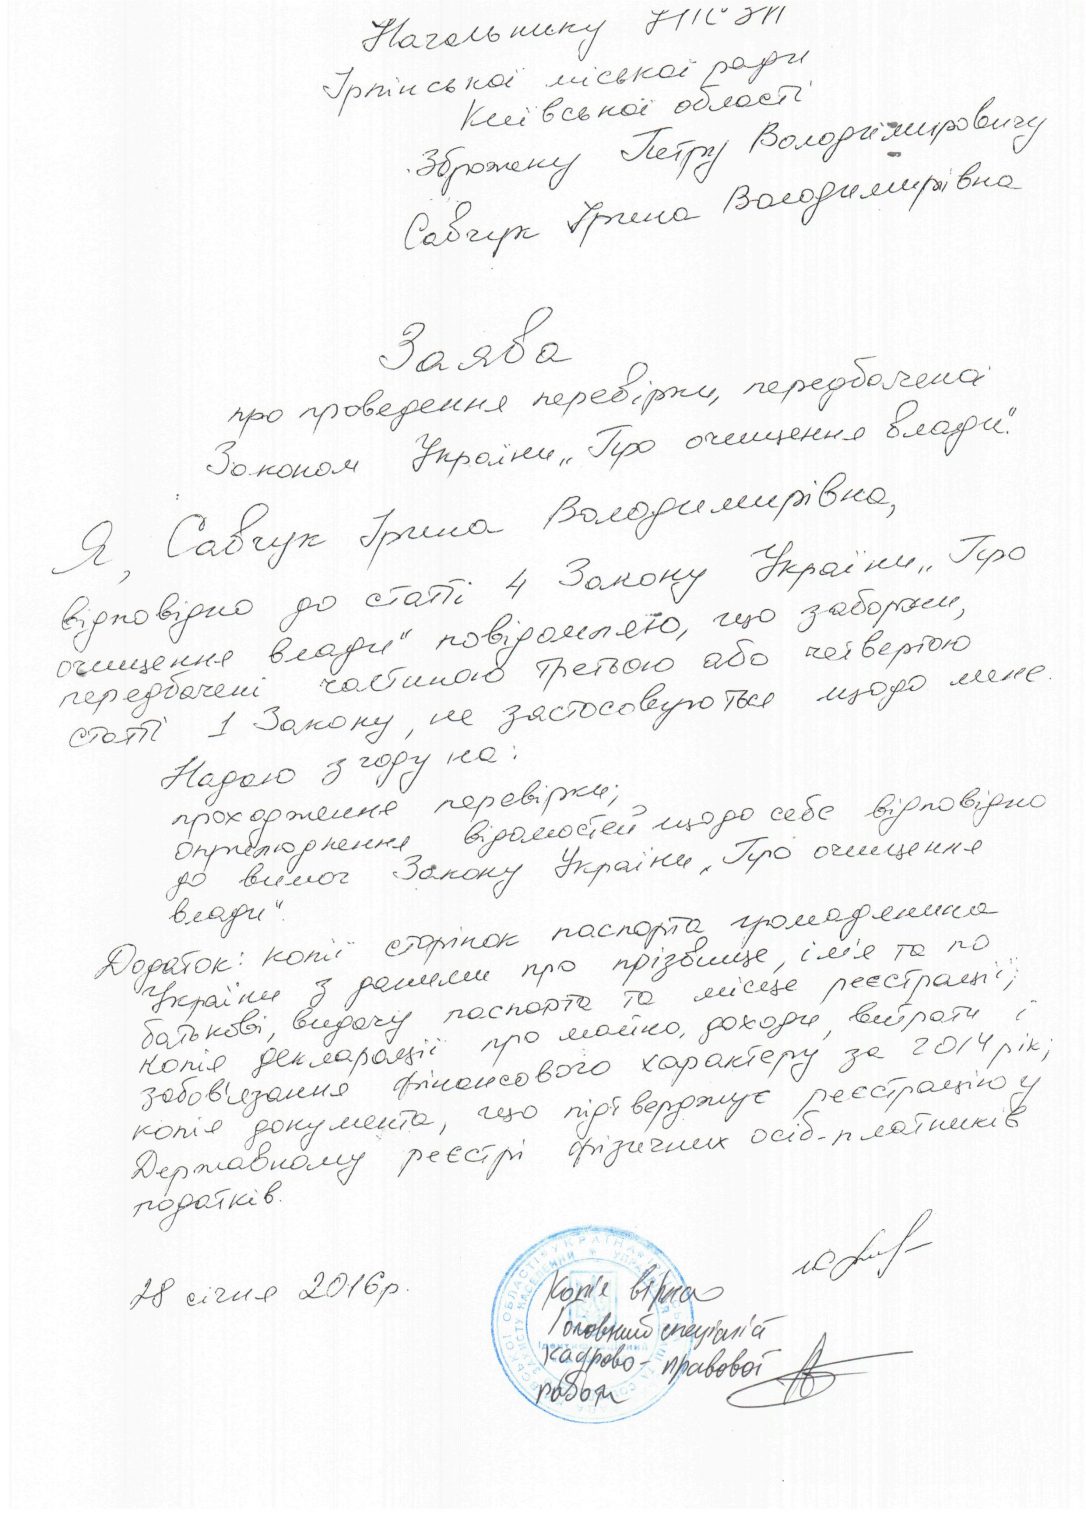 Начальнику
Ірпінської міської ради
Київської області
Зброжеку Петру Володимировичу
Савчук Ірина Володимирівна
Заява
про проведення перевірки, передбаченої
Законом України „Про очищення влади".
Я, Савчук Ірина Володимирівна,
відповідно до статті 4 Закону України „Про
очищення влади" повідомляю, що заборони,
передбачені частиною третьою або четвертою
статті 1 Закону, не застосовуються щодо мене.
Надаю згоду на:
проходження перевірки;
оприлюднення відомостей щодо себе відповідно
до вимог Закону України „Про очищення
влади".
Додаток: копії сторінок паспорта громадянина
України з даними про прізвище, ім'я та по
батькові, видачу паспорта та місце реєстрації;
копія декларації про майно, доходи, витрати і
зобов'язання фінансового характеру за 2014 рік;
копія документа, що підтверджує реєстрацію у
Державному реєстрі фізичних осіб-платників
податків.
28 січня 2016р.
Копія вірна
Головний спеціаліст
кадрово-правової
роботи